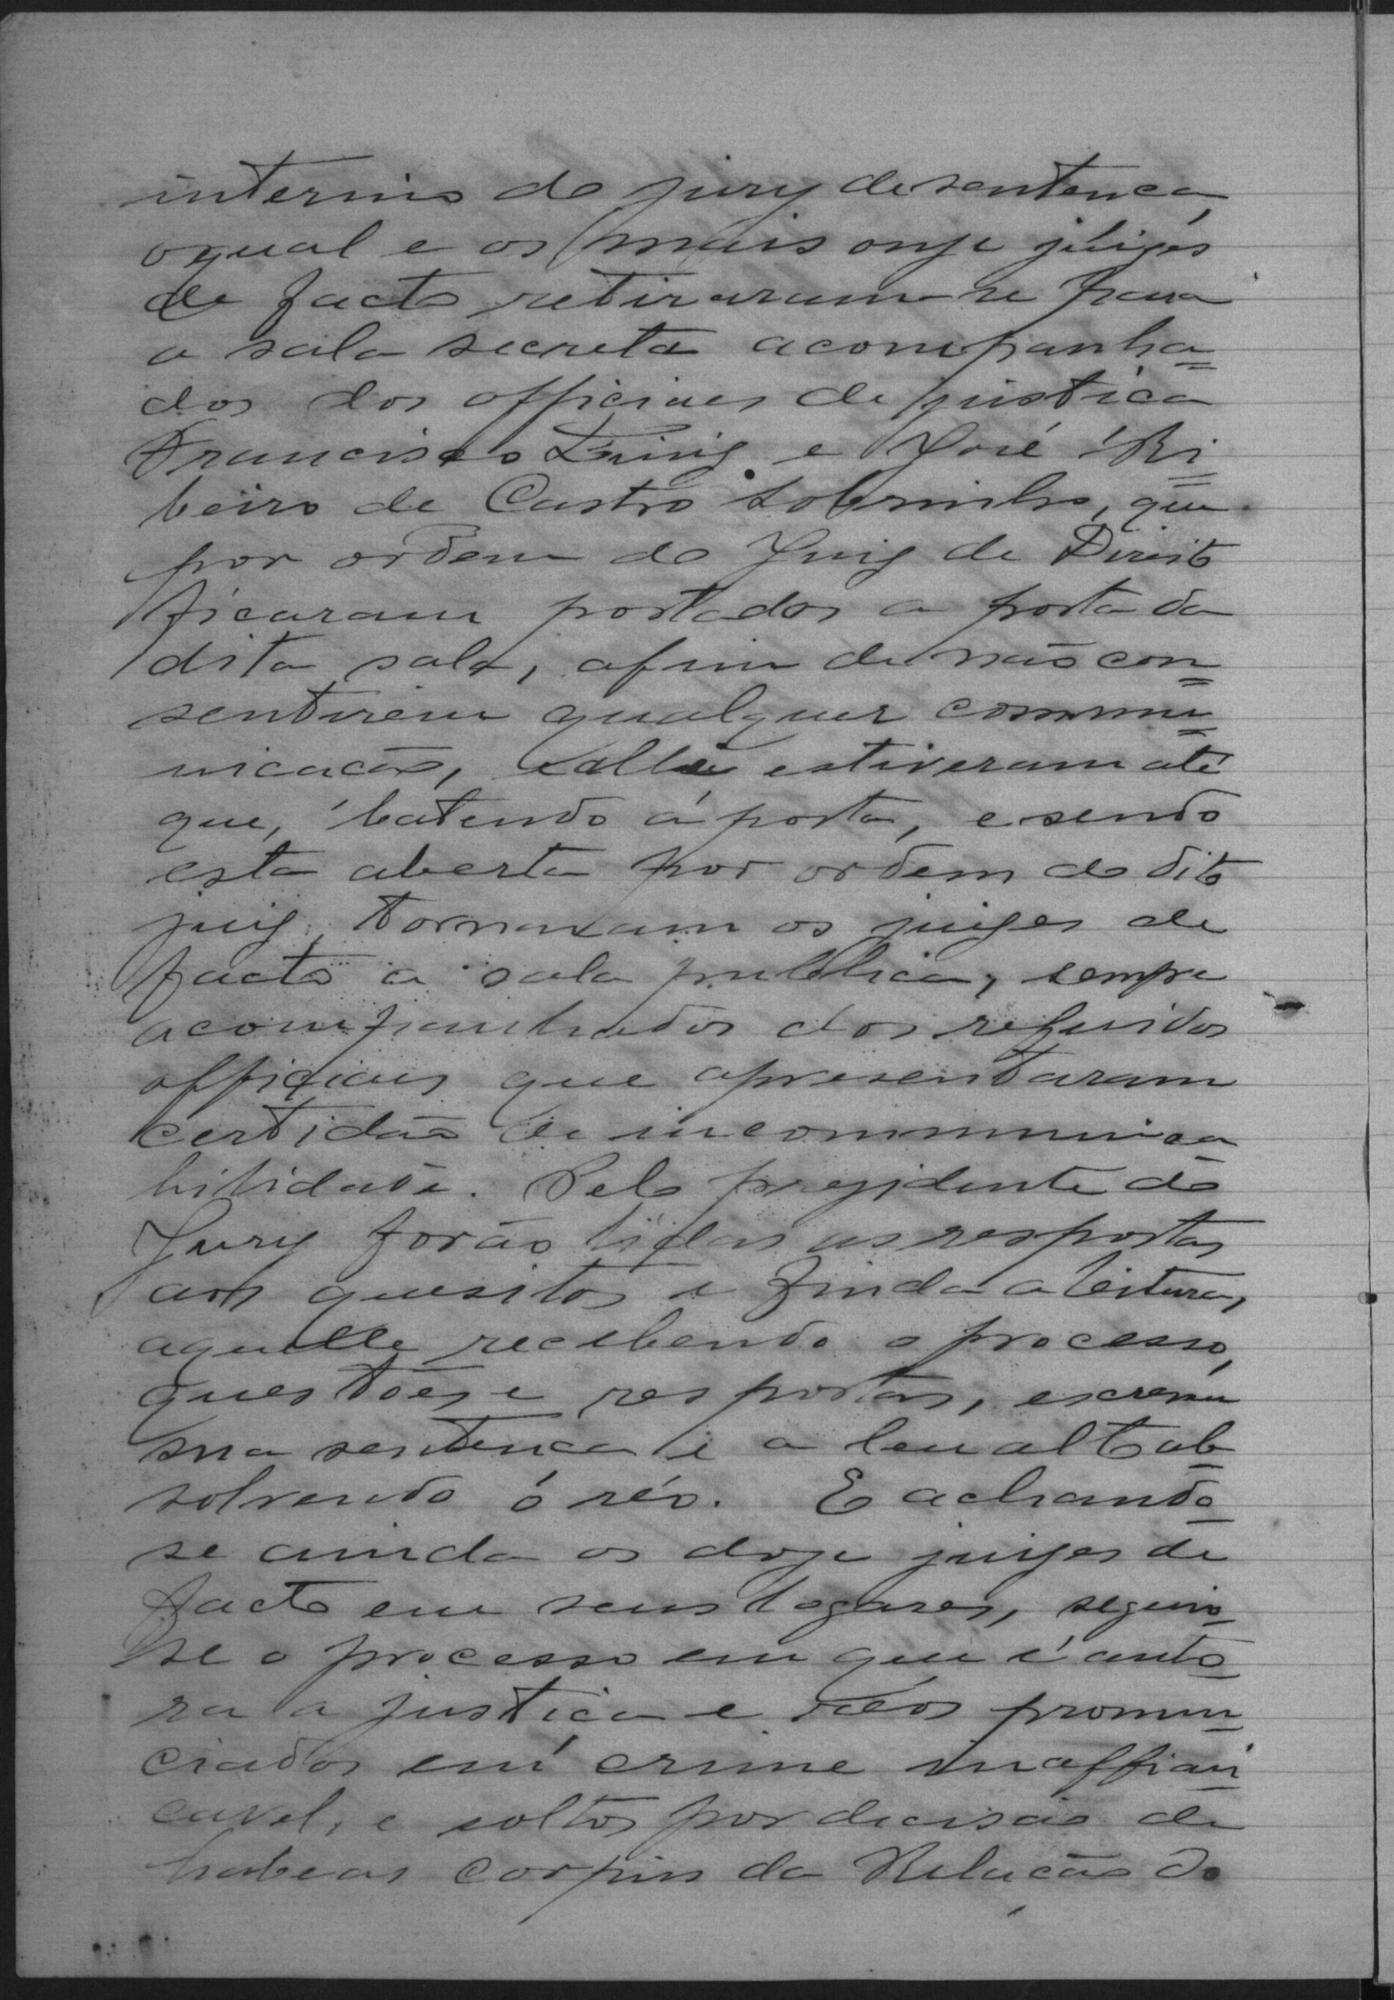 interino do jury de sentença,
o qual e os mais onze juizes
de facto retiraram-se para
a sala secreta acompanha=
dos dos officiaes de justiça
Francisco Luiz e José Ri=
beiro de Castro Sobrinho, que
por ordem do Juiz de Direito
ficaram postados a porta da
dita sala, afim de não con=
sentirem qualquer commu=
nicação, e alli estiveram até
que, batendo á porta, e sendo
esta aberta por ordem do dito
juiz, tornaram os juizes de
facto a sala publica, sempre
acompanhados dos referidos
officiaes que apresentaram
certidão de incommunica
bilidade. Pelo prezidente do
Jury forão lidas as respostas
aos quesitos e finda a leitura,
aquelle recebendo o processo,
questões e respostas, escreveu
sua sentença e a leu alto ab-
solvendo o réo. E achando-
se ainda os doze juizes de
facto em seus logares, seguio-
se o processo em que é auto-
ra a justiça e réos pronun-
ciados em crime inaffian-
çavel, e soltos por decisão de
habeas corpus da Relação do